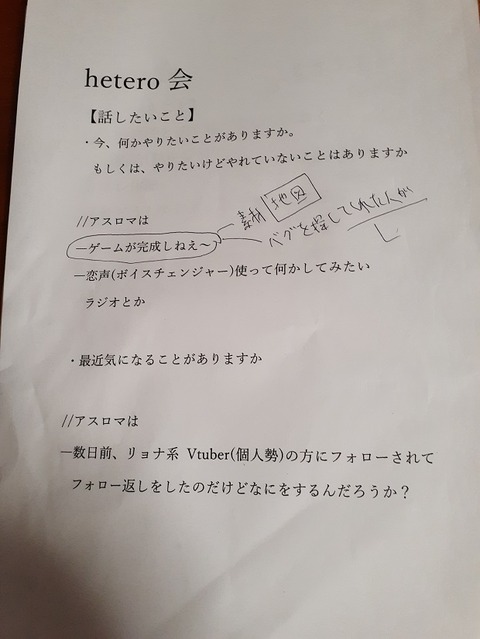 hetero 会
【話したいこと】
・今、何かやりたいことがありますか。
もしくは、やりたいけどやれていないことはありますか
//アスロマは
素材 地図
―ゲームが完成しねえ～
バグを探してくれた人が
―恋声(ボイスチェンジャー)使って何かしてみたい
ラジオとか
・最近気になることがありますか
//アスロマは
―数日前、リョナ系 Vtuber(個人勢)の方にフォローされて
フォロー返しをしたのだけどなにをするんだろうか？